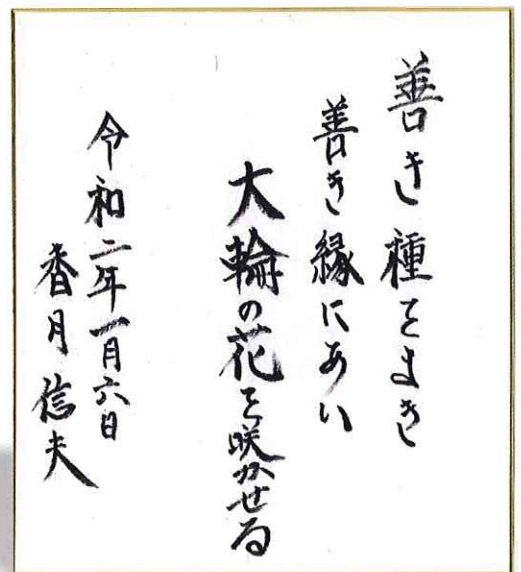 善き種をまき
善き縁にあい
大輪の花を咲かせる
令和二年一月六日
香月信夫